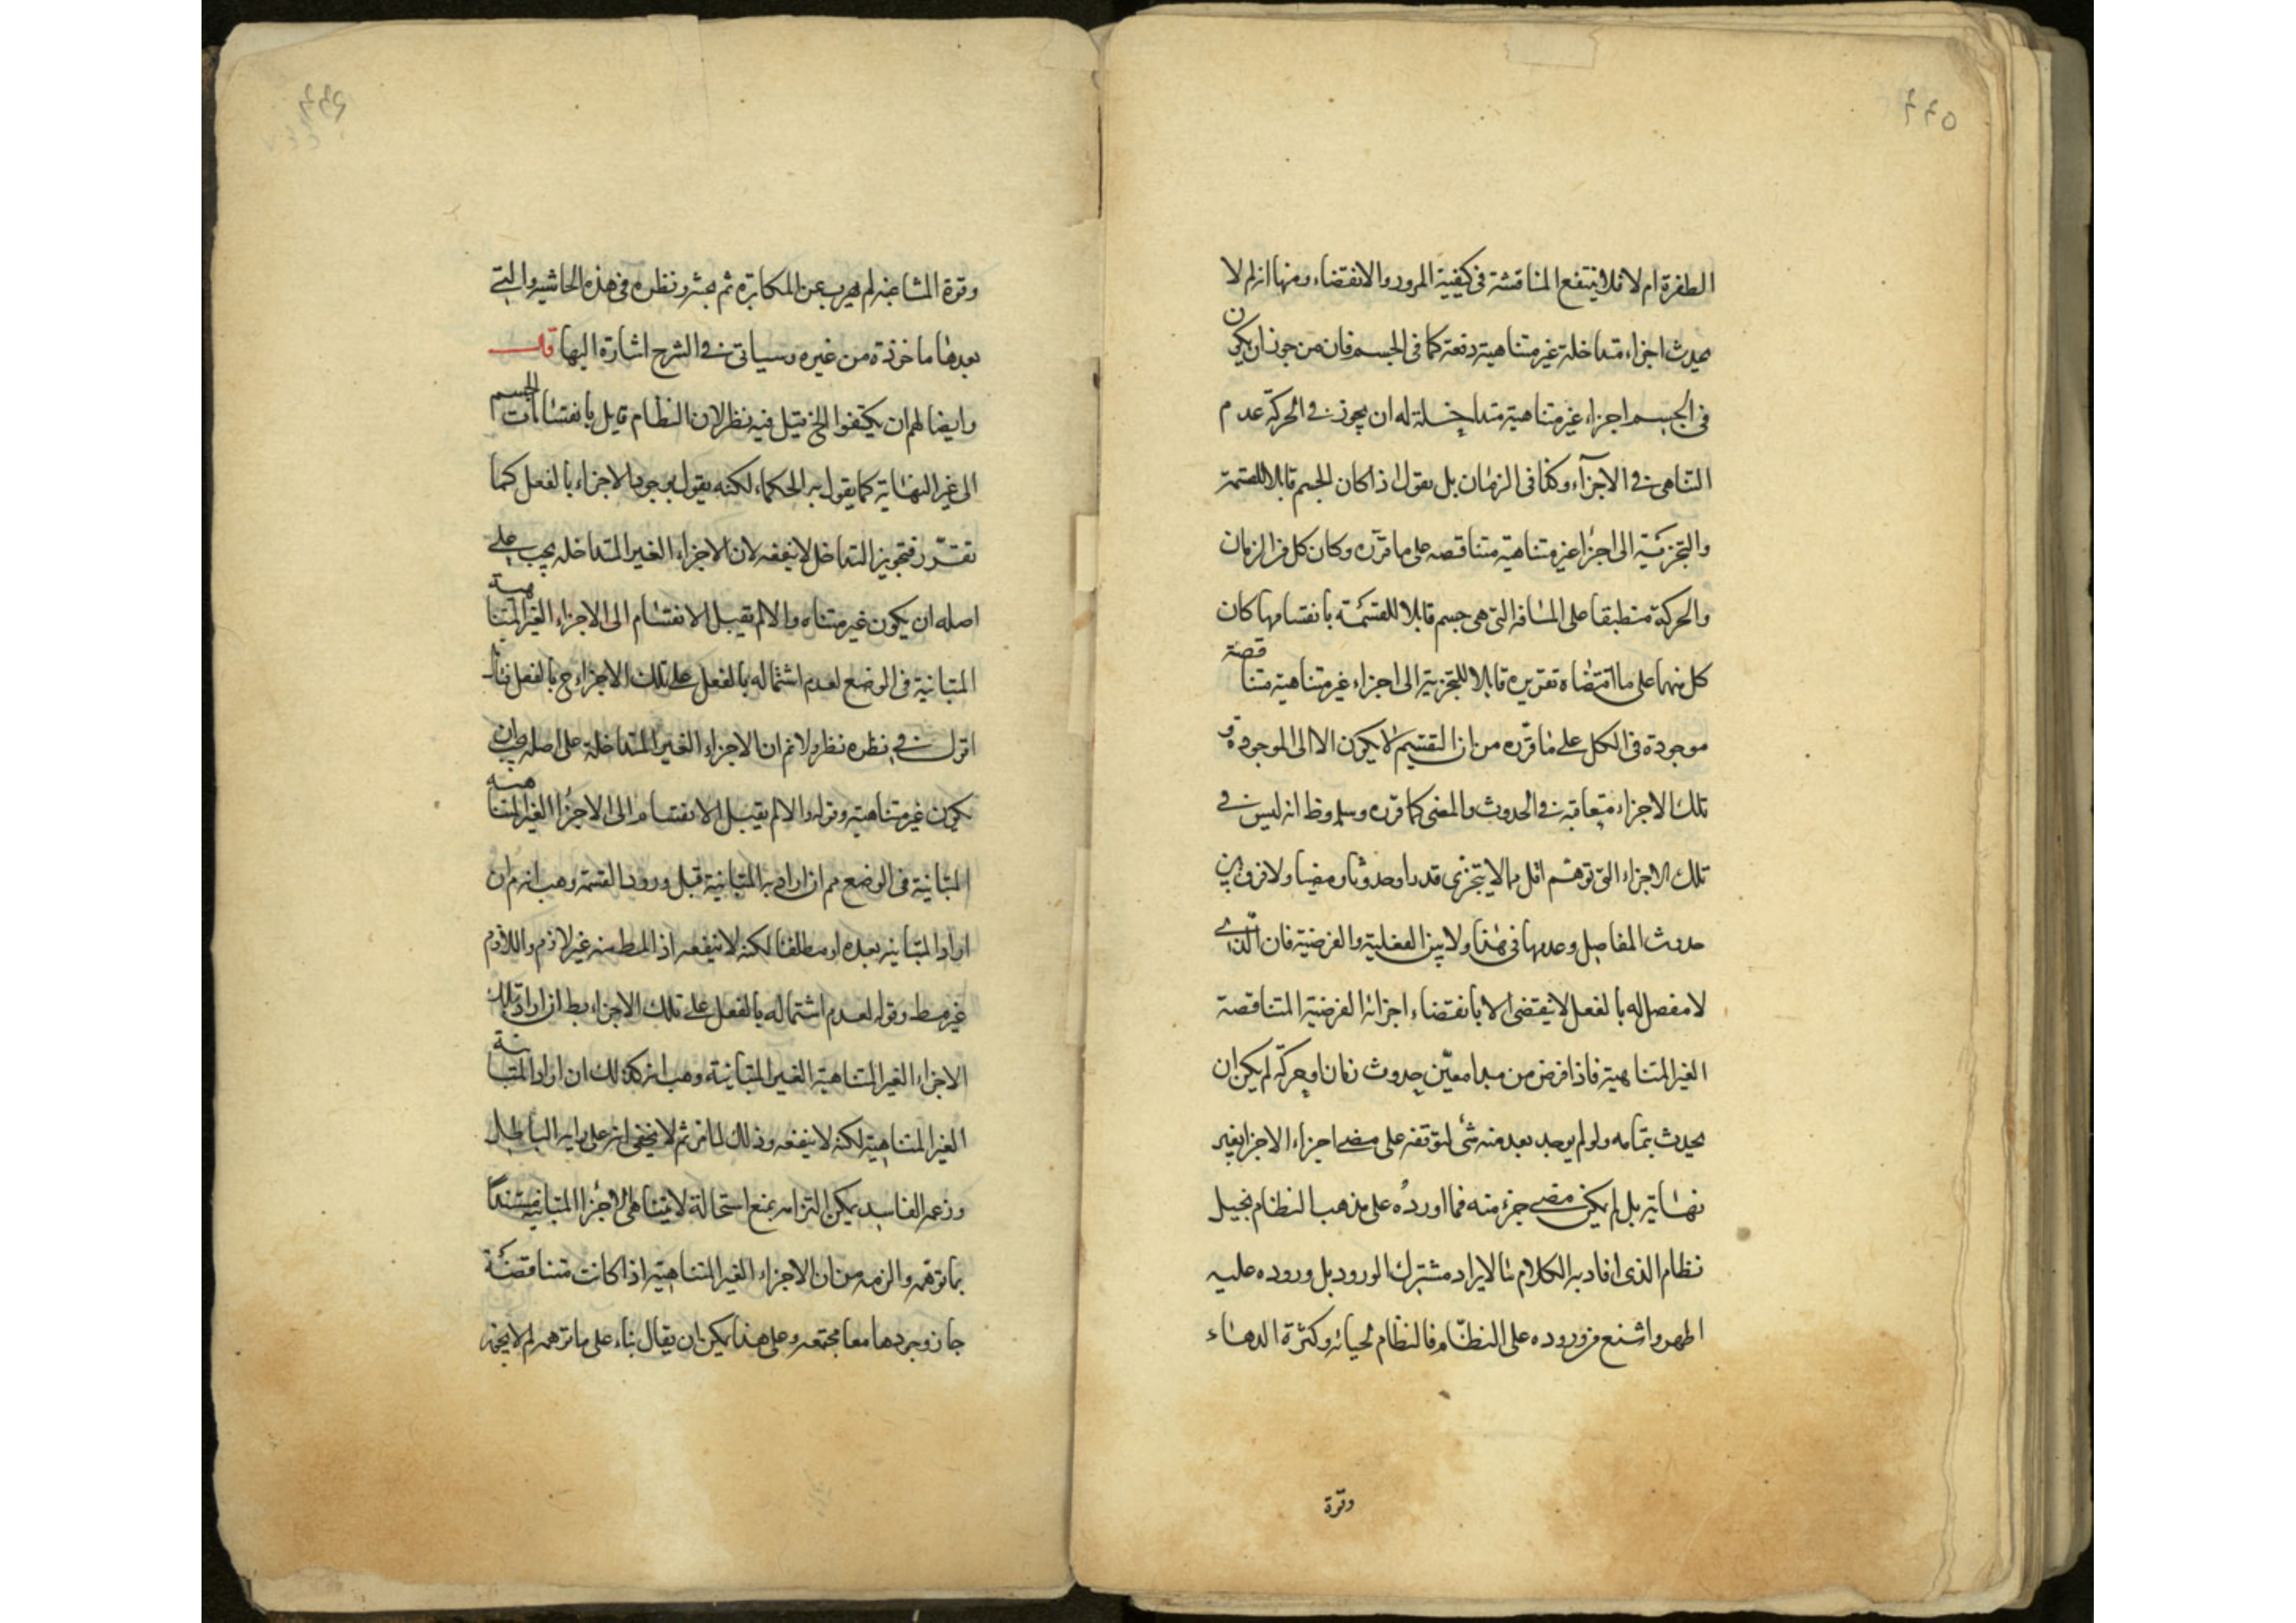 ٤٤٥
الطفرة ام لا فلا ينتفع المناقشة فى كيفية المرور والانقضاء ومنها انه لم لا
يحدث اجزاء متداخلة غير متناهية دفعة كما فى الجسم فان من جوز ان يكون
فى الجسم اجزاء غير متناهية متداخلة له ان يجوز فى الحركة عدم
التناهى فى الاجزآء وكذا فى الزمان بل نقول اذا كان الجسم قابلا للقسمة
والتجزئية الى اجزا غير متناهية متناقصه على ما قرّره وكان كل من الزمان
والحركة منطبقا على المسافه التى هى جسم قابلا للقسمة بانقسامها كان
كل منهما على ما اقتضاه تقريره قابلا للتجزية الى اجزاء غير متناهية متناقصة
موجودة فى الكل على ما قرّره من ان التقسيم لا يكون الا الى الموجودة و
تلك الاجزاء متعاقبة فى الحدوث والمضى كما قرّره وسلم وظ انه ليس فى
تلك الاجزاء التى توهم اقل مما لا يتجزى قدرا وحدوثا ومضيا ولا فرق بين
حدوث المفاصل وعدمها فى هذا ولا بين الفعلية والفرضية فان الذى
لا مفصل له بالفعل لا ينقضى الا بانقضاء اجزائه الفرضية المتناقصة
الغير المتناهية فاذا فرض من مبدا معيّن حدوث زمان او حركة لم يكن ان
يحدث بتمامه ولو لم يوجد بعد منه شئ لتوقفه على مضى اجزاء الاجزا بغير
نهاية بل لم يكن مضى جزء منه فما اورده على مذهب النظام بخيل
نظام الذى افاد به الكلام الايراد مشترك الورود بل وروده عليه
اظهر واشنع من وروده على النظّام فالنظام لحيائه وكثرة الدهاء
وقوة
وقوة المشاغبه لم يهرب عن المكابره ثم نظره فى هذه الحاشيه والتى
بعدها ماخوذة من غيره وسياتى فى الشرح اشارة اليها قال
وايضا لهم ان يكتفوا الخ قيل فيه نظر لان النظام قايل بانقسامات الجسم
الى غير النهاية كما يقول به الحكماء لكنه يقول بوجود الاجزاء بالفعل كما
تقرّر فتجويز التداخل لا ينفعه لان الاجزاء الغير المتداخله يجب على
اصله ان يكون غير متناه والا لم يقبل الانقسام الى الاجزاء الغير المتناهية
المتباينة فى الوضع لعدم اشتماله بالفعل على تلك الاجزاء ح بالفعل
اقول فى نظره نظر ولا نم ان الاجزاء الغير المتداخلة على اصله يجب ان
يكون غير متناهية وقوله والا لم يقبل الانقسام الى الاجزا الغير المتناهية
المتباينة فى الوضع مم ان اراد به المتباينة قبل ورود القسمة وهب انه م ان
اراد المتباينه بعده او مطلقا لكنه لا ينفعه اذ المط منه غير لازم واللازم
غير مط وقوله لعدم اشتماله بالفعل على تلك الاجزاء بط ان اراد بتلك
الاجزاء الغير المتناهية الغير المتباينة وهب انه كذلك ان اراد المتباينة
الغير المتناهية لكنه لا ينفعه وذلك لما مر ثم لا يخفى انه على رايه الباطل
وزعمه الفاسد يمكن التزامه بمنع استحالة لا تناهى الاجزا المتباينه مستندا
بما توهمه والزمه من ان الاجزاء الغير المتناهية اذا كانت متناقصة
جاز وجودها معا مجتمعه وعلى هذا يمكن ان يقال بناء على ما توهمه لم لا يجوز